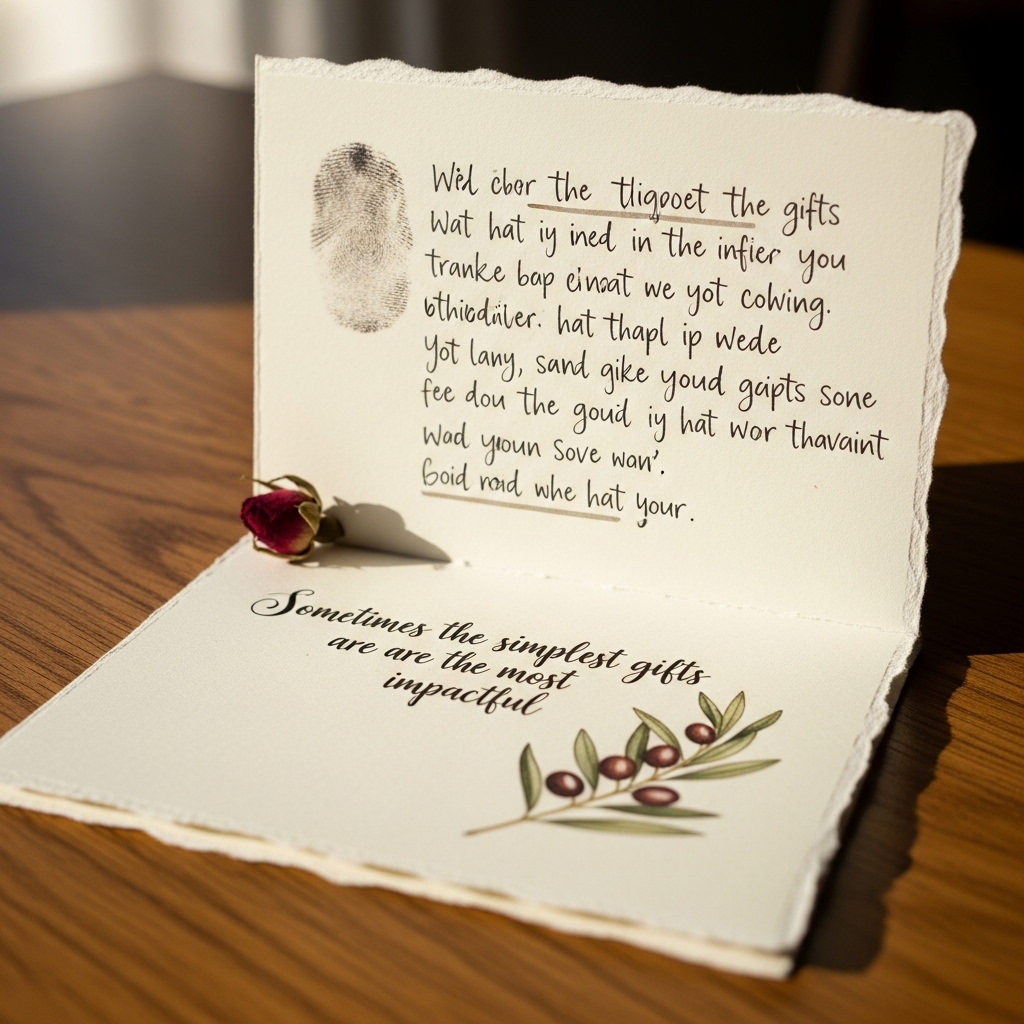 Wèl cber the tligpoet the gifts
Wat hat iy ined in the infier you
tranke bap einoat we yot colwing.
hat thapl ip wede
Yot lany, sand gike youd gapts sone
fee dou the goud iy hat wor thavaint
Wad youn Sove wan'.
Goid rad whe hat your.
Sometimes the simplest gifts
are are the most
impactful